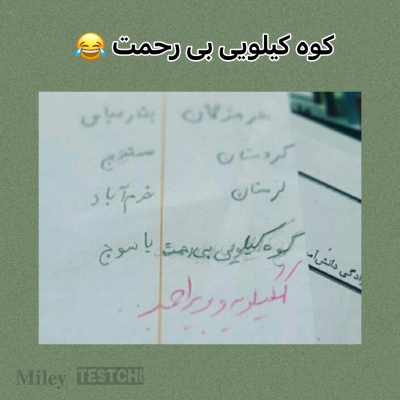 کوه کیلویی بی رحمت 😂
هرمزگان بندرعباس
کردستان سنندج
لرستان خرم آباد
کوه کیلویی بی رحمت یاسوج
کهگیلویه و بویراحمد
Miley TESTCHI